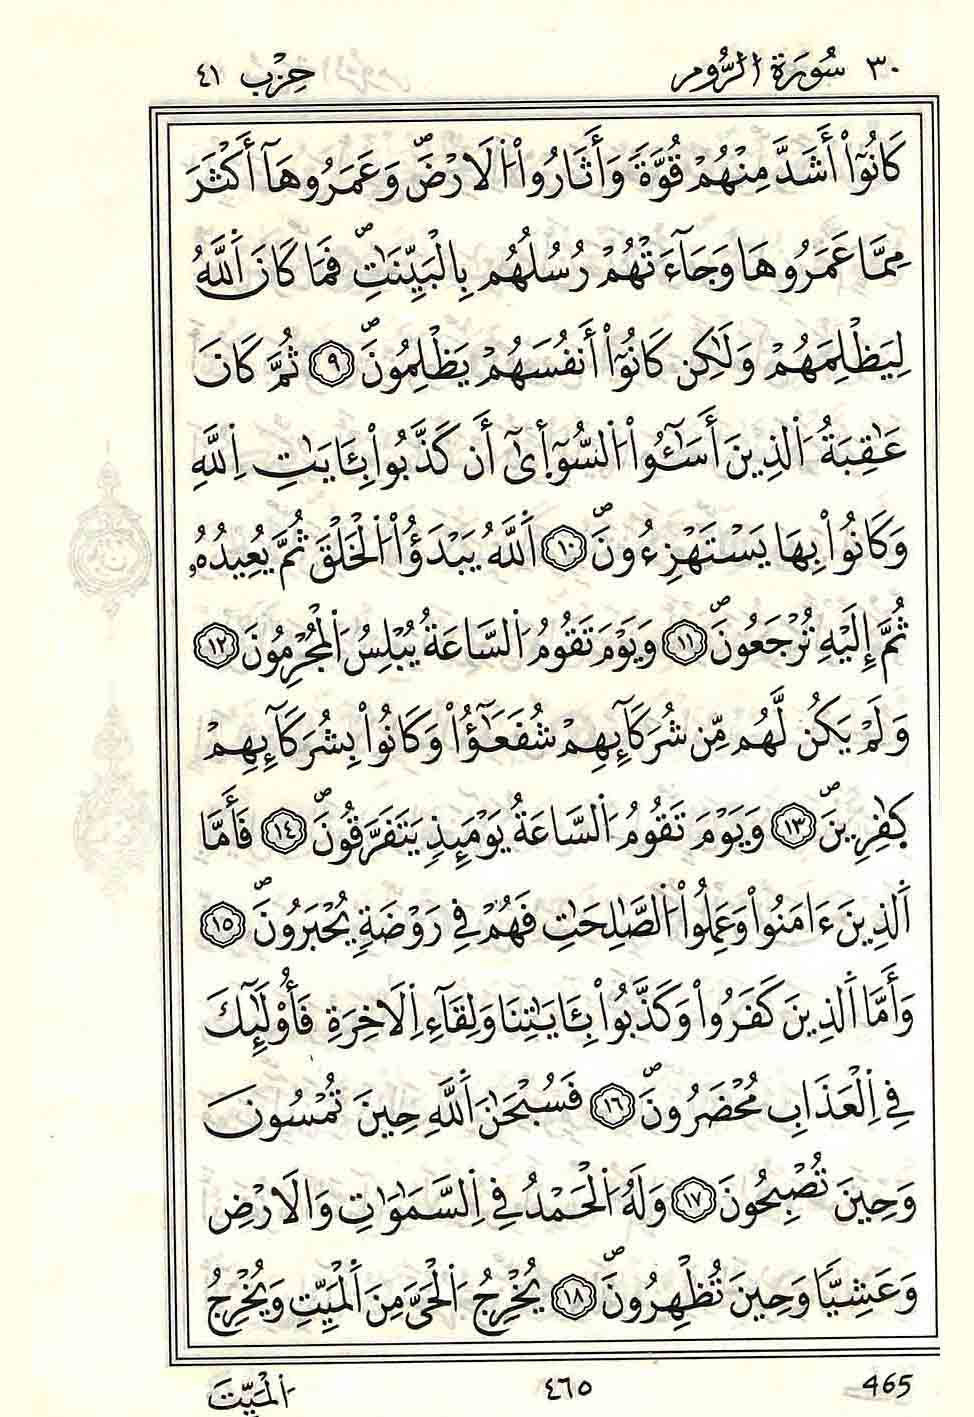 ٣٠ سُورَةُ الرُّومِ حِزْب ٤١
كَانُوٓاْ أَشَدَّ مِنْهُمْ قُوَّةَ وَأَثَارُواْ اُ۬لَارْضَۖ وَعَمَرُوهَآ أَكْثَرَ
مِمَّا عَمَرُوهَا وَجَآءَتْهُمْ رُسُلُهُم بِالْبَيِّنَٰتِۖ فَمَا كَانَ اَ۬للَّهُ
لِيَظْلِمَهُمْ وَلَٰكِن كَانُوٓاْ أَنفُسَهُمْ يَظْلِمُونَۖ ٩ ثُمَّ كَانَ
عَٰقِبَةُ اُ۬لذِينَ أَسَٰٓـُٔواْ اُ۬لسُّوٓأ۪ىٰٓ أَن كَذَّبُواْ بِـَٔايَٰتِ اِ۬للَّهِ
وَكَانُواْ بِهَا يَسْتَهْزِءُونَۖ ١٠ اَ۬للَّهُ يَبْدَؤُاْ اُ۬لْخَلْقَ ثُمَّ يُعِيدُهُۥ
ثُمَّ إِلَيْهِ تُرْجَعُونَۖ ١١ وَيَوْمَ تَقُومُ اُ۬لسَّاعَةُ يُبْلِسُ اُ۬لْمُجْرِمُونَ ١٢
وَلَمْ يَكُن لَّهُم مِّن شُرَكَآئِهِمْ شُفَعَٰٓؤُاْ وَكَانُواْ بِشُرَكَآئِهِمْ
كَٰفِرِينَۖ ١٣ وَيَوْمَ تَقُومُ اُ۬لسَّاعَةُ يَوْمَئِذٖ يَتَفَرَّقُونَۖ ١٤ فَأَمَّا
اَ۬لذِينَ ءَامَنُواْ وَعَمِلُواْ اُ۬لصَّٰلِحَٰتِ فَهُمْ فِي رَوْضَةٖ يُحْبَرُونَۖ ١٥
وَأَمَّا اَ۬لذِينَ كَفَرُواْ وَكَذَّبُواْ بِـَٔايَٰتِنَا وَلِقَآءِ اِ۬لَاخِرَةِ فَأُوْلَٰٓئِكَ
فِي اِ۬لْعَذَابِ مُحْضَرُونَۖ ١٦ فَسُبْحَٰنَ اَ۬للَّهِ حِينَ تُمْسُونَ
وَحِينَ تُصْبِحُونَ ١٧ وَلَهُ اُ۬لْحَمْدُ فِي اِ۬لسَّمَٰوَٰتِ وَالَارْضِ
وَعَشِيّاٗ وَحِينَ تُظْهِرُونَۖ ١٨ يُخْرِجُ اُ۬لْحَيَّ مِنَ اَ۬لْمَيِّتِ وَيُخْرِجُ
اُ۬لْمَيِّتَ ٤٦٥ 465